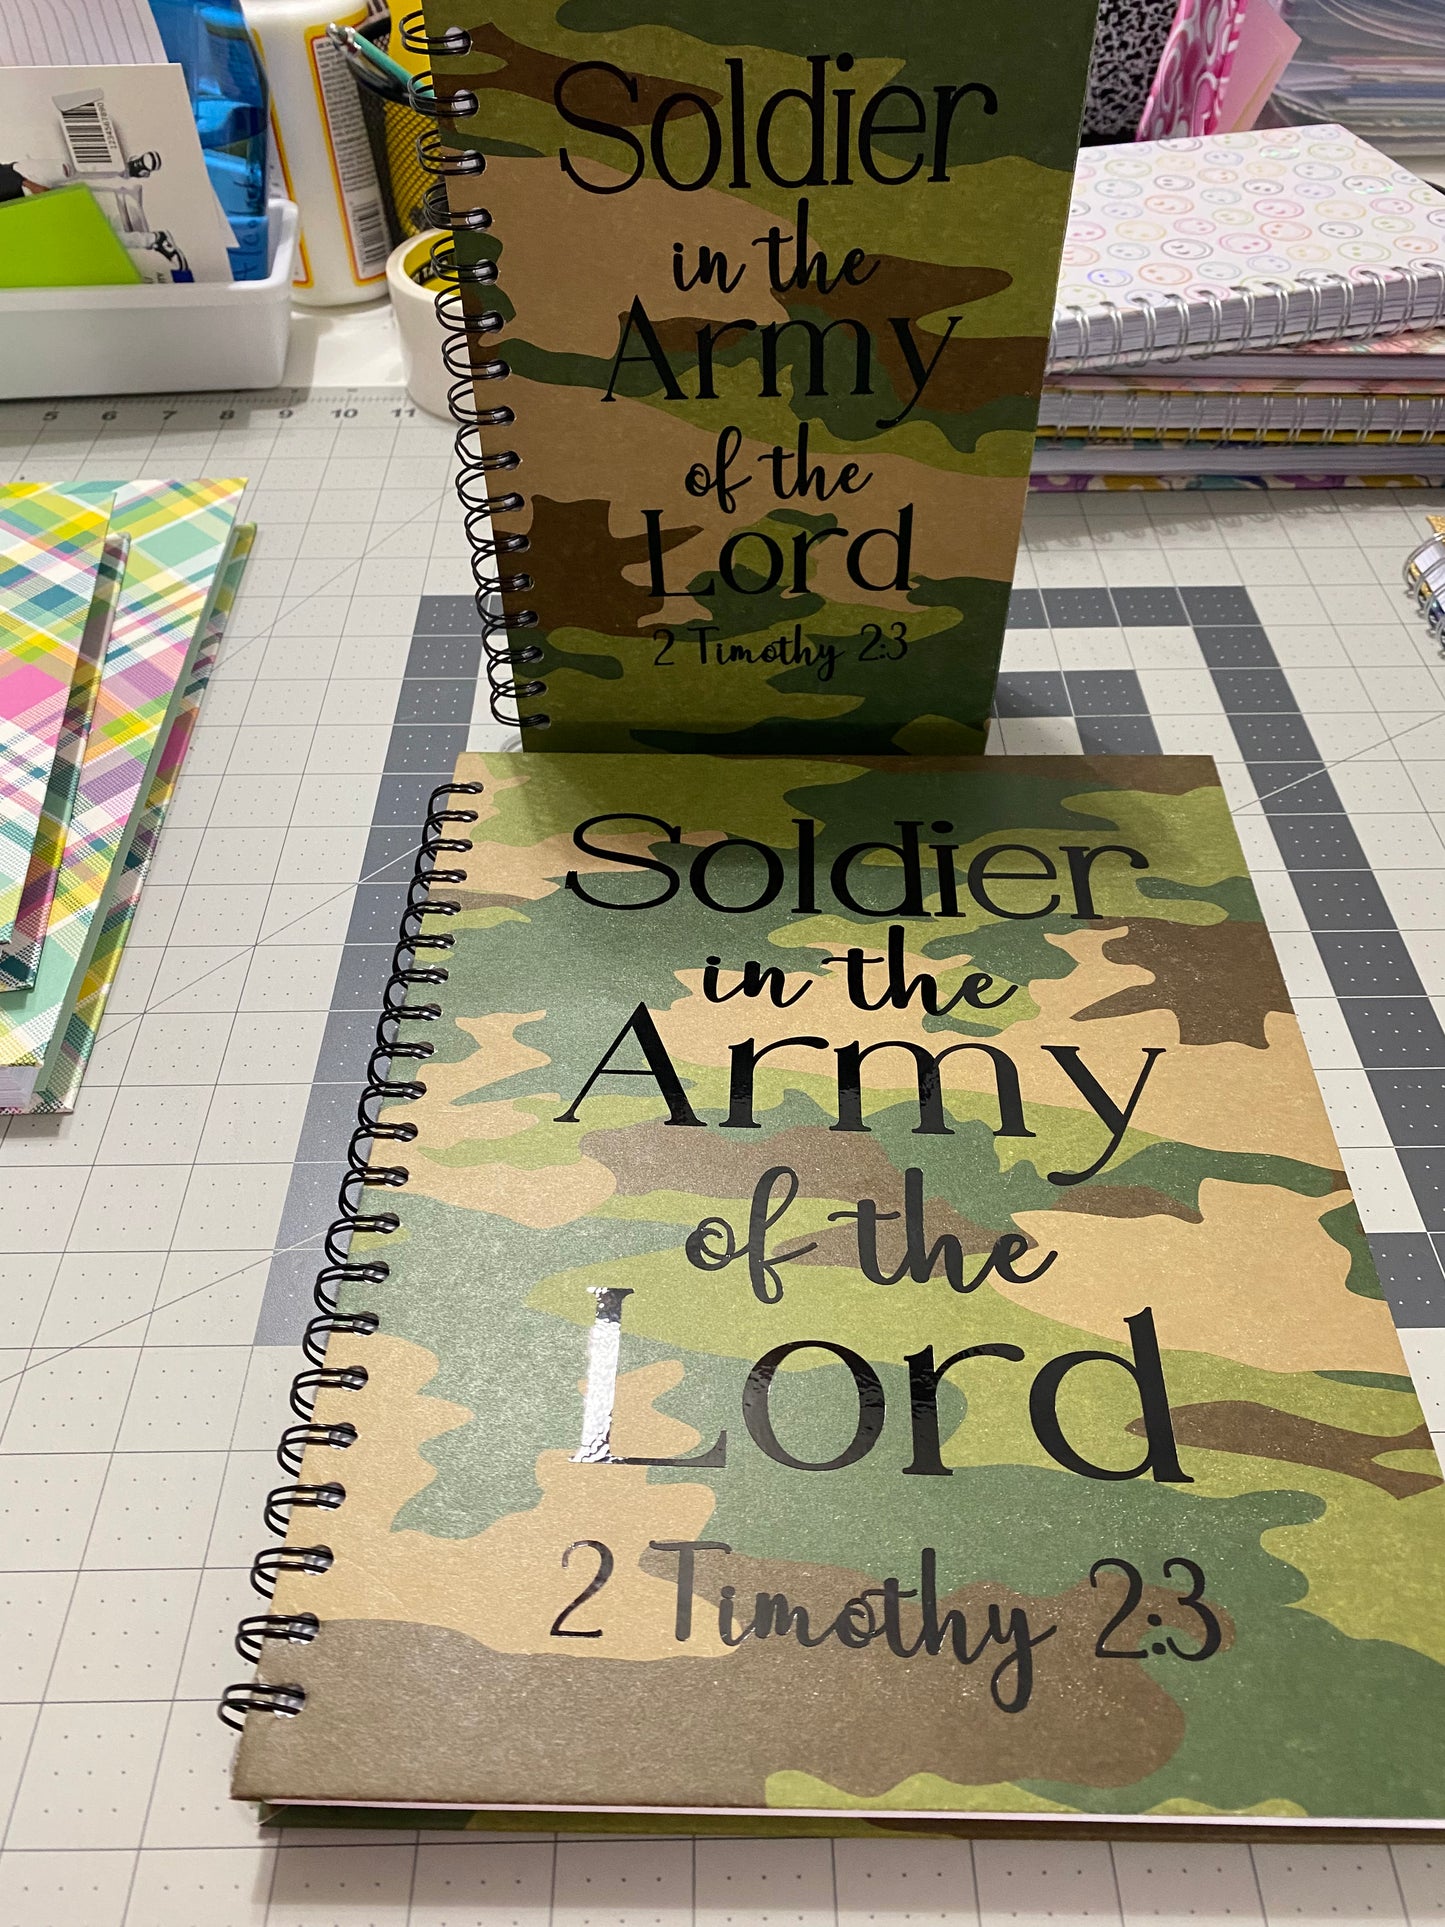 Soldier
in the
Army
of the
Lord
2 Timothy 2:3
5 6 7 8 9 10 11
Soldier
in the
Army
of the
Lord
2 Timothy 2:3